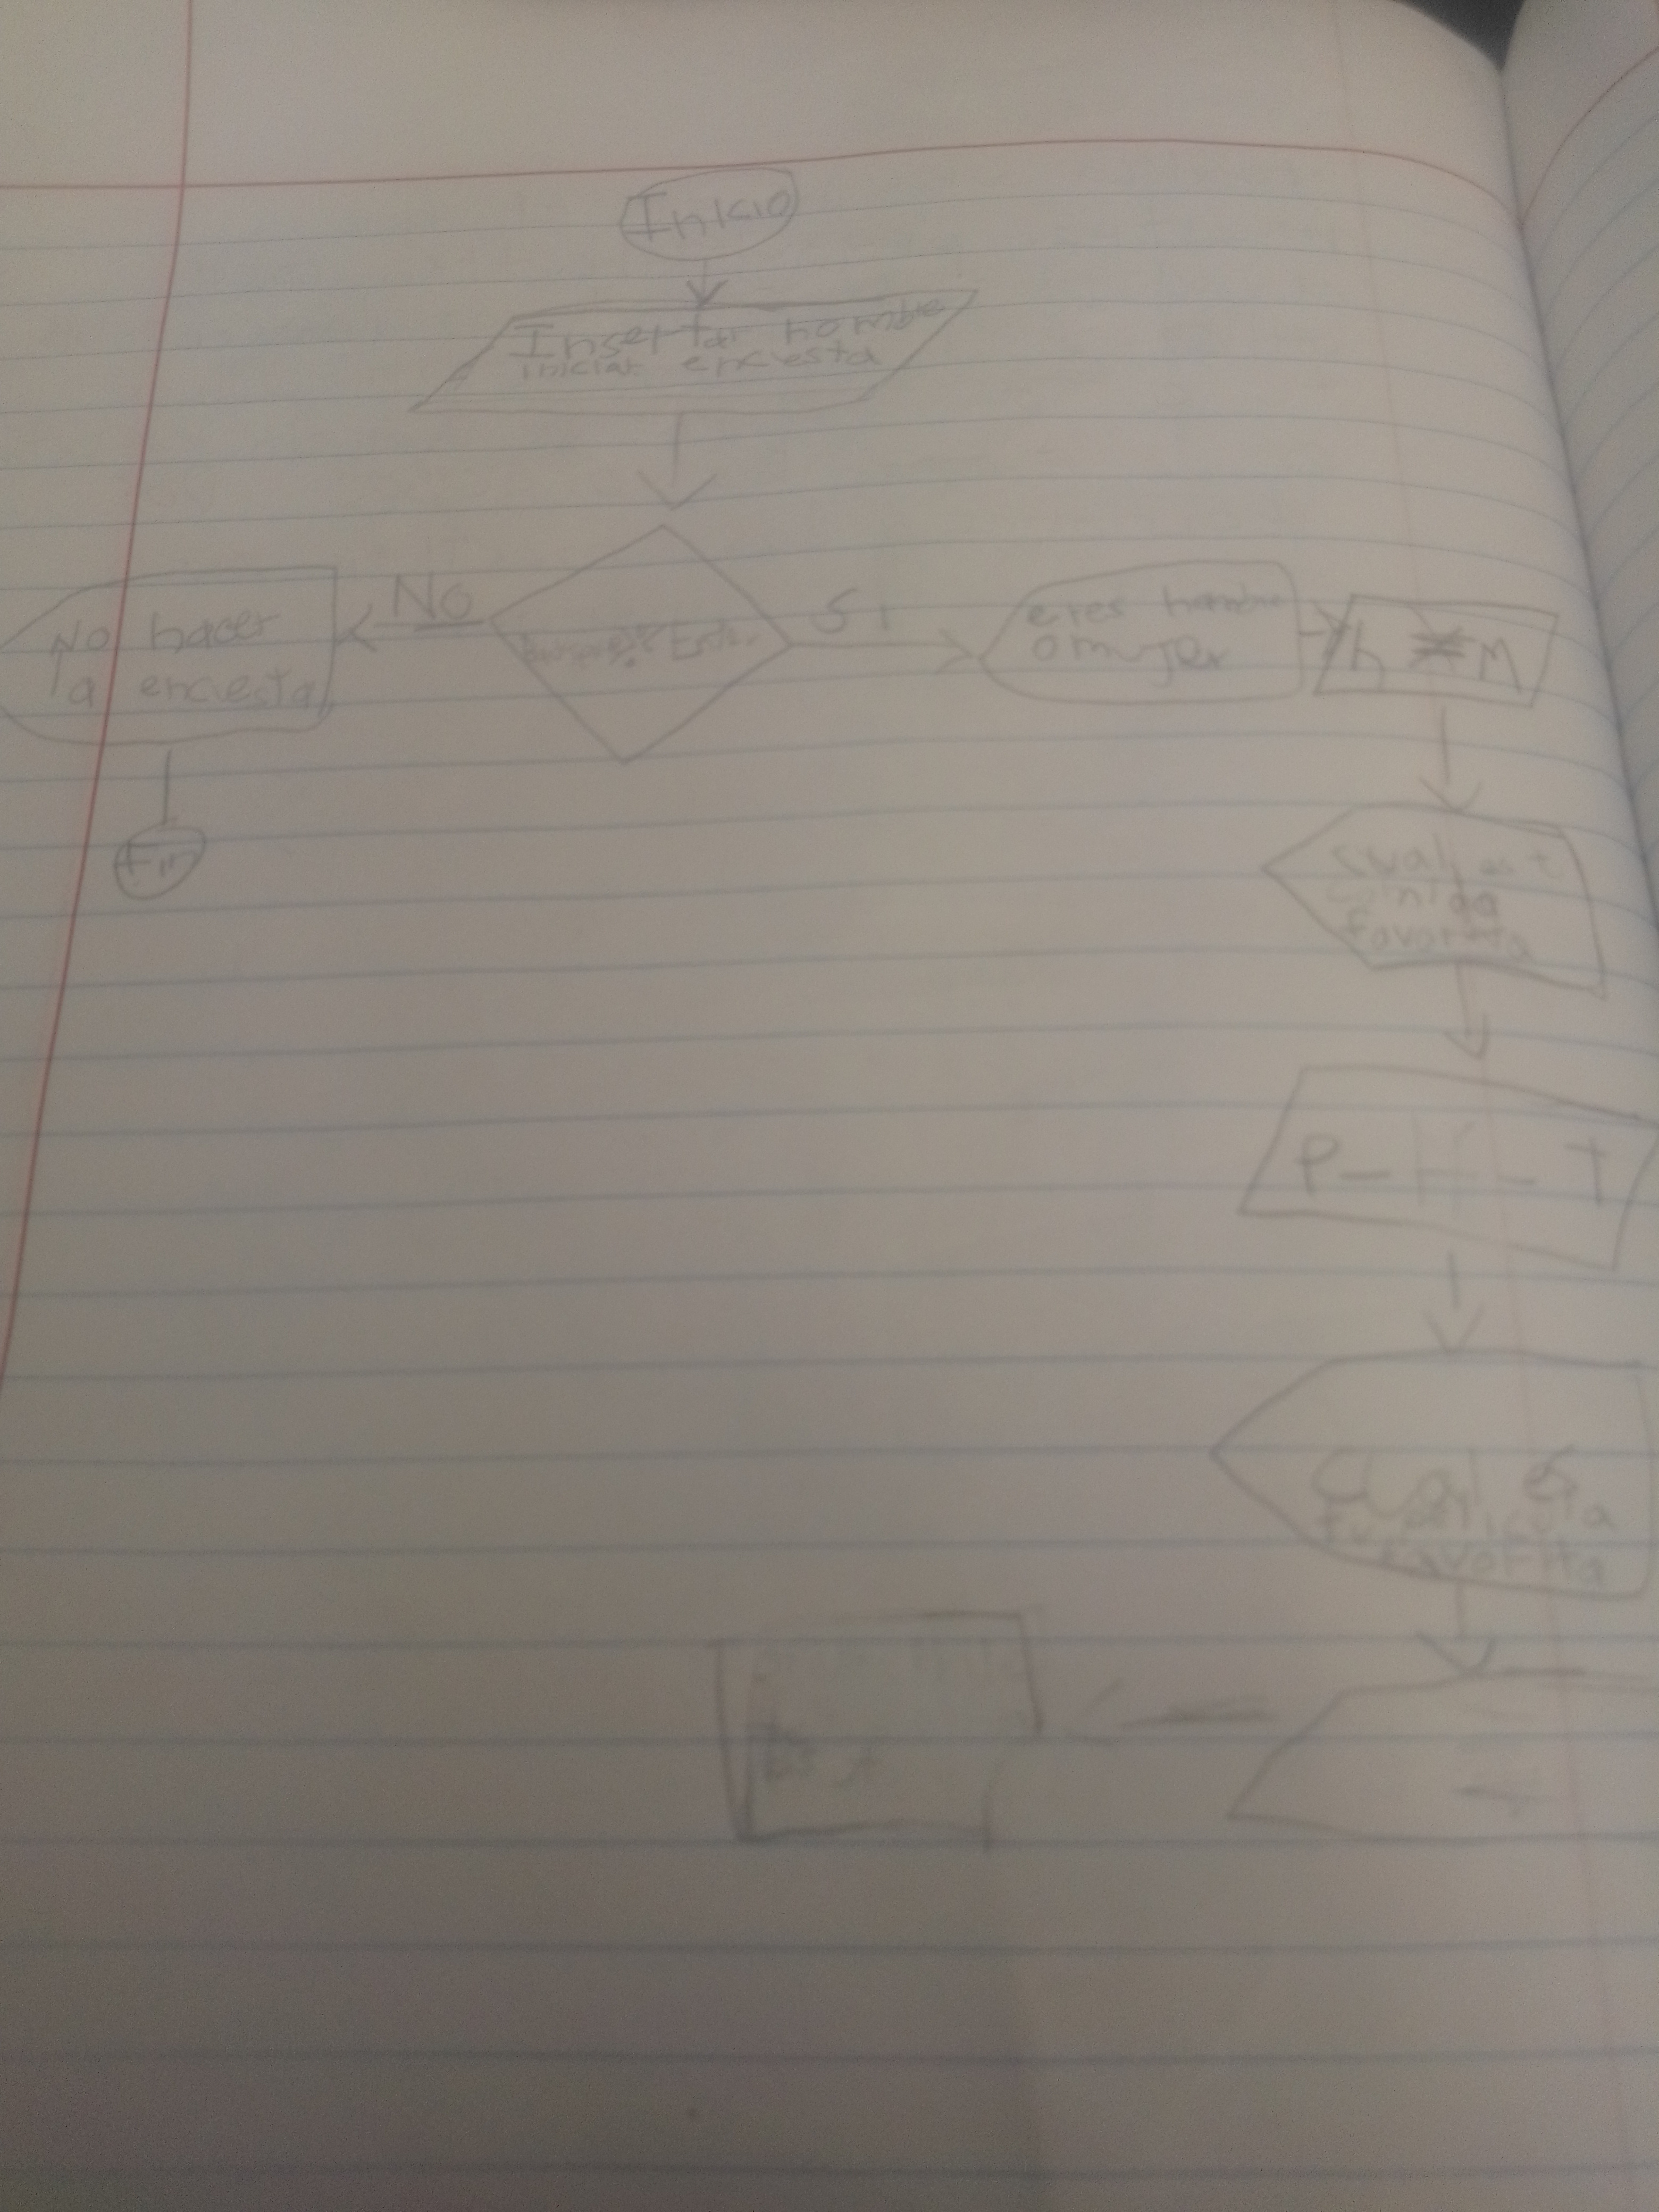 Inicio
Insertar nombre
iniciar encuesta
No
Si
No hacer
la encuesta
eres hombre
o mujer
h M
Fin
cual es t
comida
favorita
P - H - T
Cual es
tu pelicula
favorita